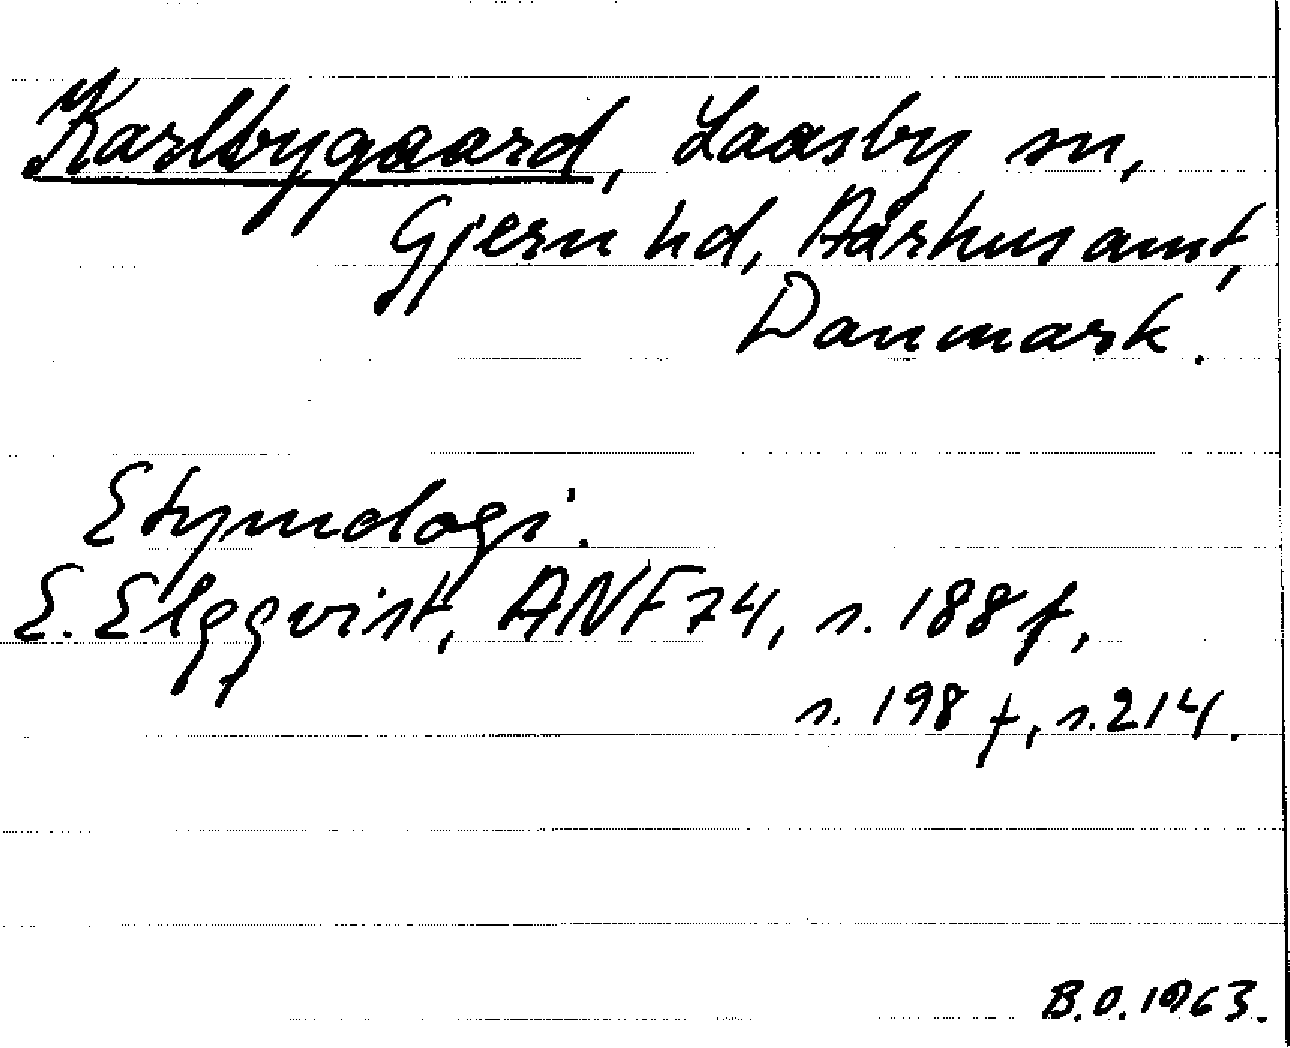 Karlbygaard, Laasby sn,
Gjern hd, Aarhus amt,
Danmark.
Etymologi.
E. Elgqvist, ANF 74, s. 188 f,
s. 198 f, s. 214.
B.O. 1963.